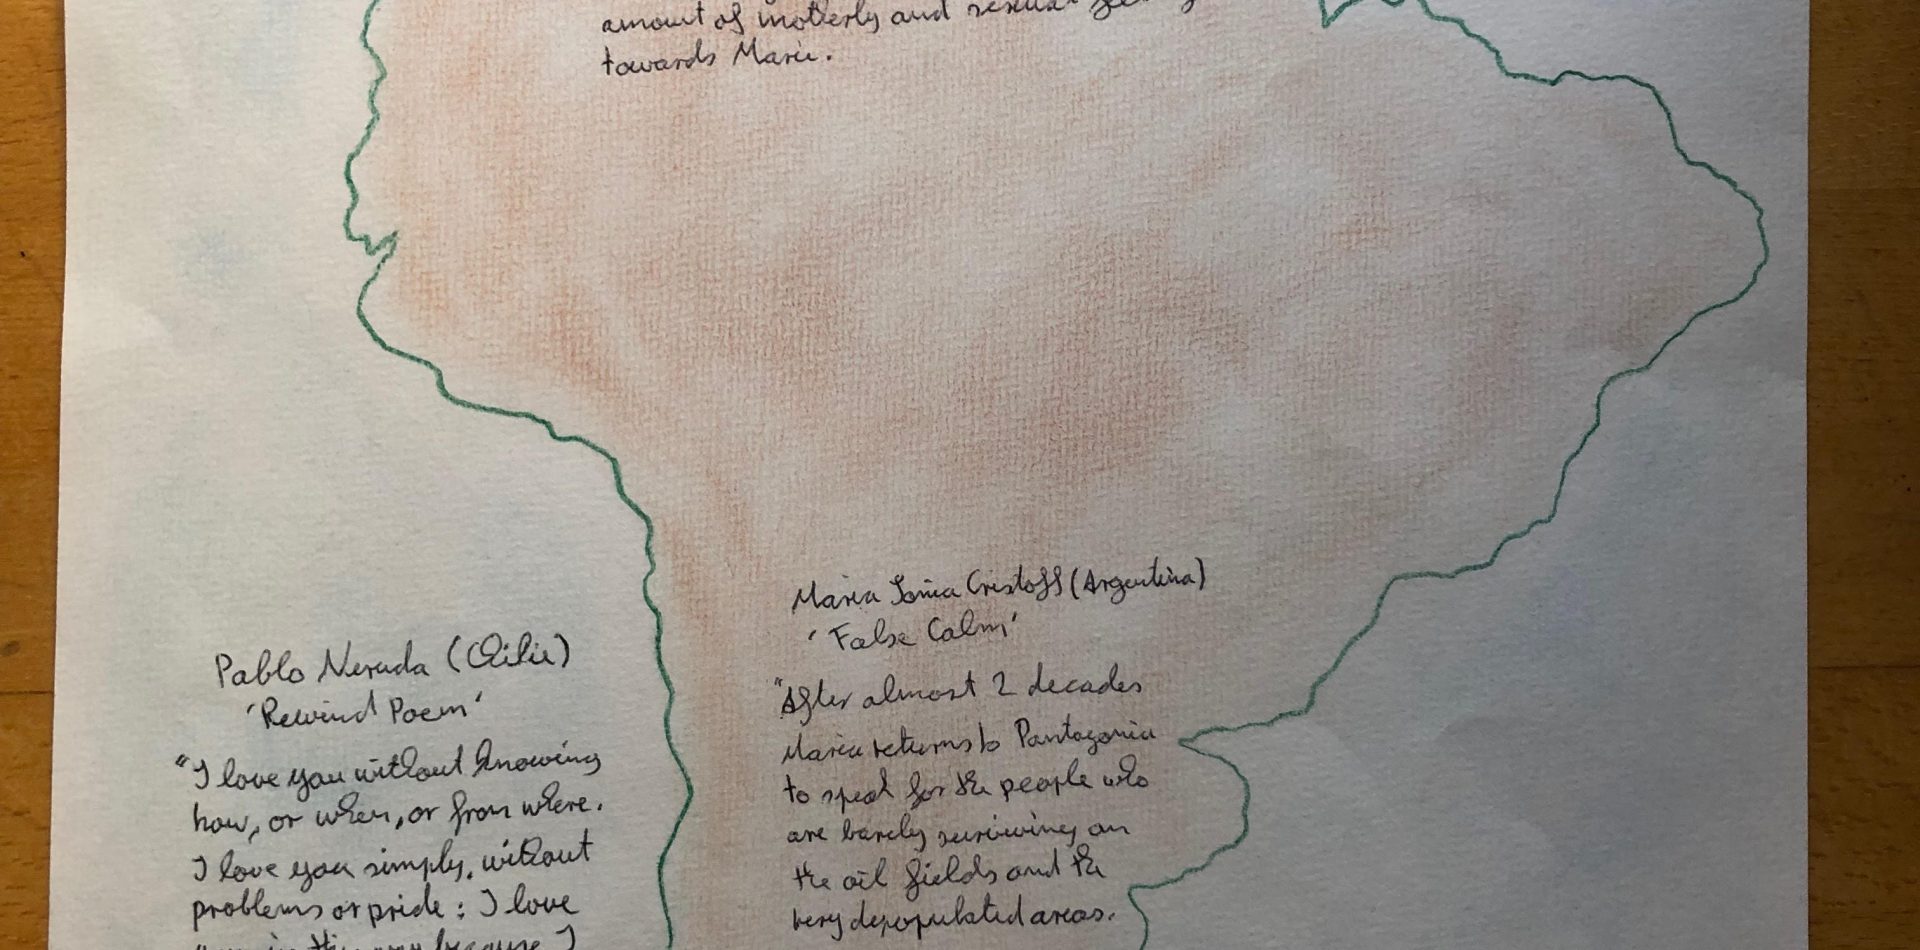 amount of motherly and sexual
towards Marie.
Maria Sonia Cristoff (Argentina)
'False Calm'
"After almost 2 decades
Maria returns to Pantagonia
to speak for the people who
are barely surviwing on
the oil fields and the
very depopulated areas.
Pablo Neruda (Chilie)
'Rewind Poem'
"I love you without knowing
how, or when, or from where.
I love you simply, without
problems or pride: I love
you in this way because I